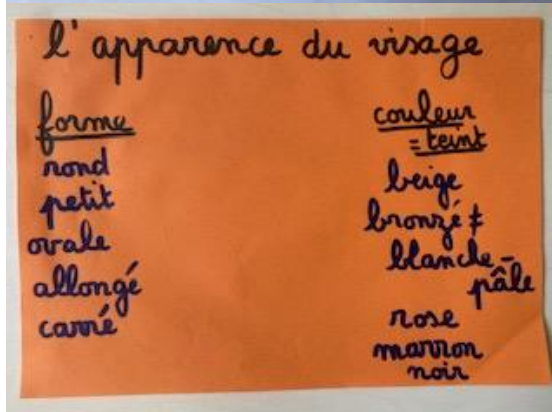 l'apparence du visage
forme
rond
petit
ovale
allongé
carré
couleur
= teint
beige
bronzé ≠
blanche -
pâle
rose
marron
noir